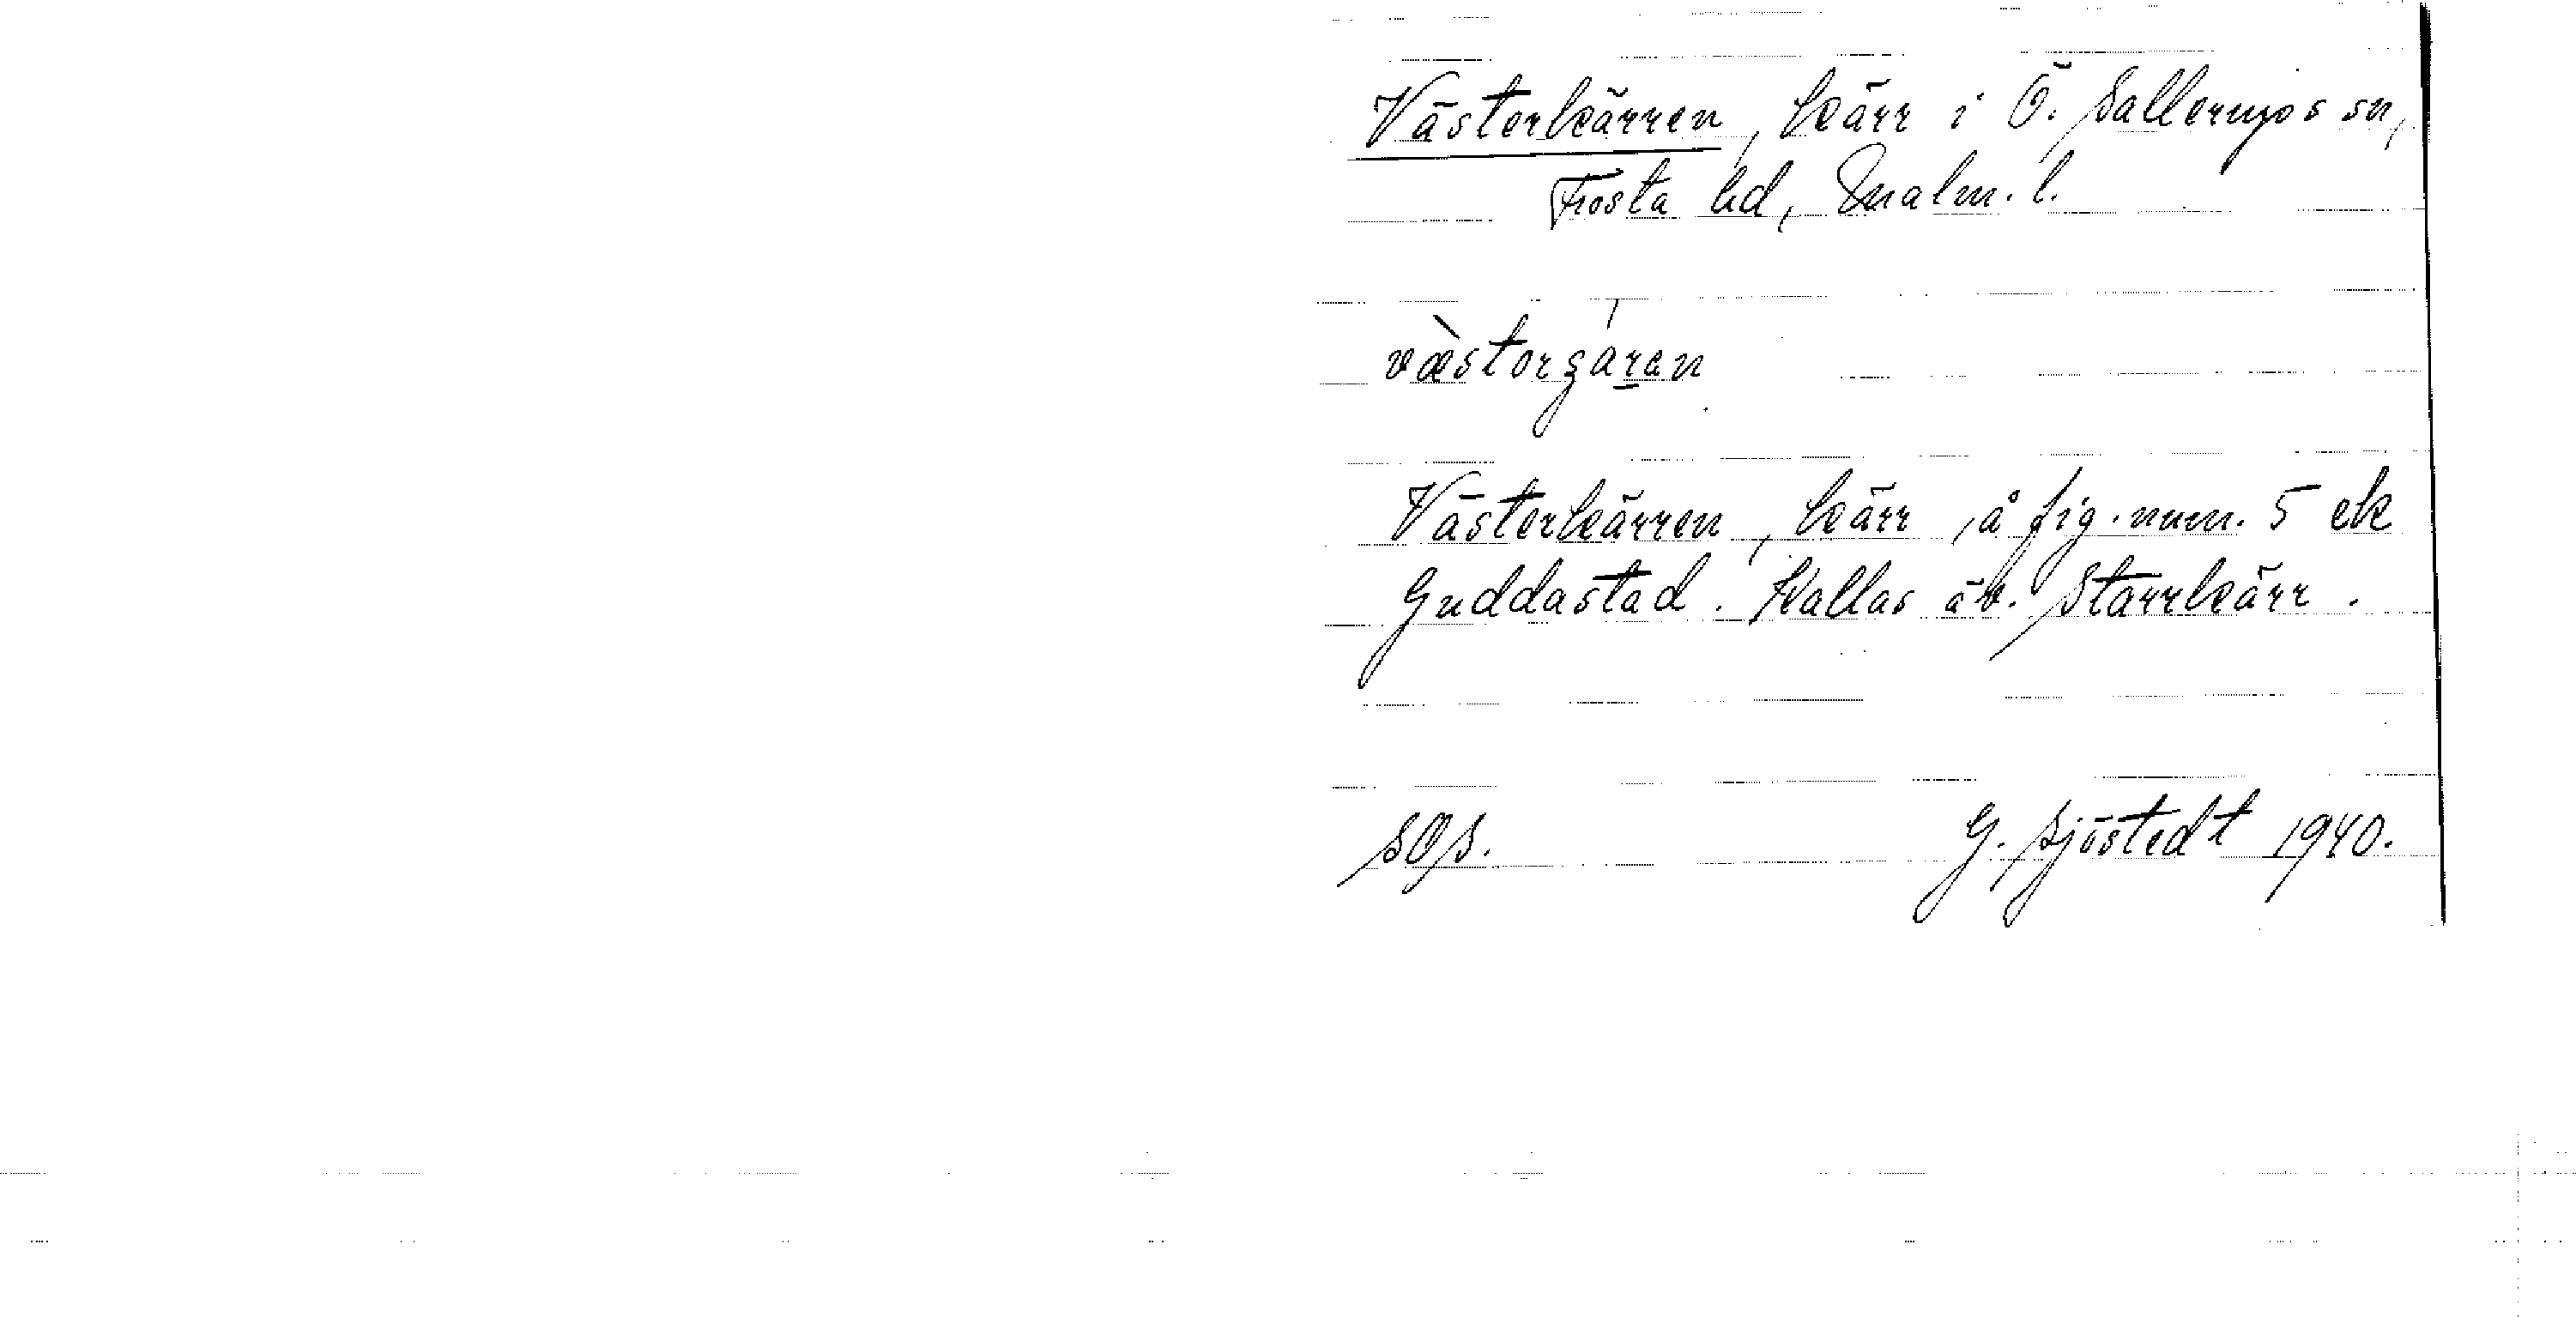 Västerkärren, kärr i Ö. Sallerups sn,
Frosta hd, Malm. l.
Västerkärren, kärr, å fig. num. 5 ek
Guddastad. Kallas äv. Starrkärr.
SOS. G. Sjöstedt 1940.